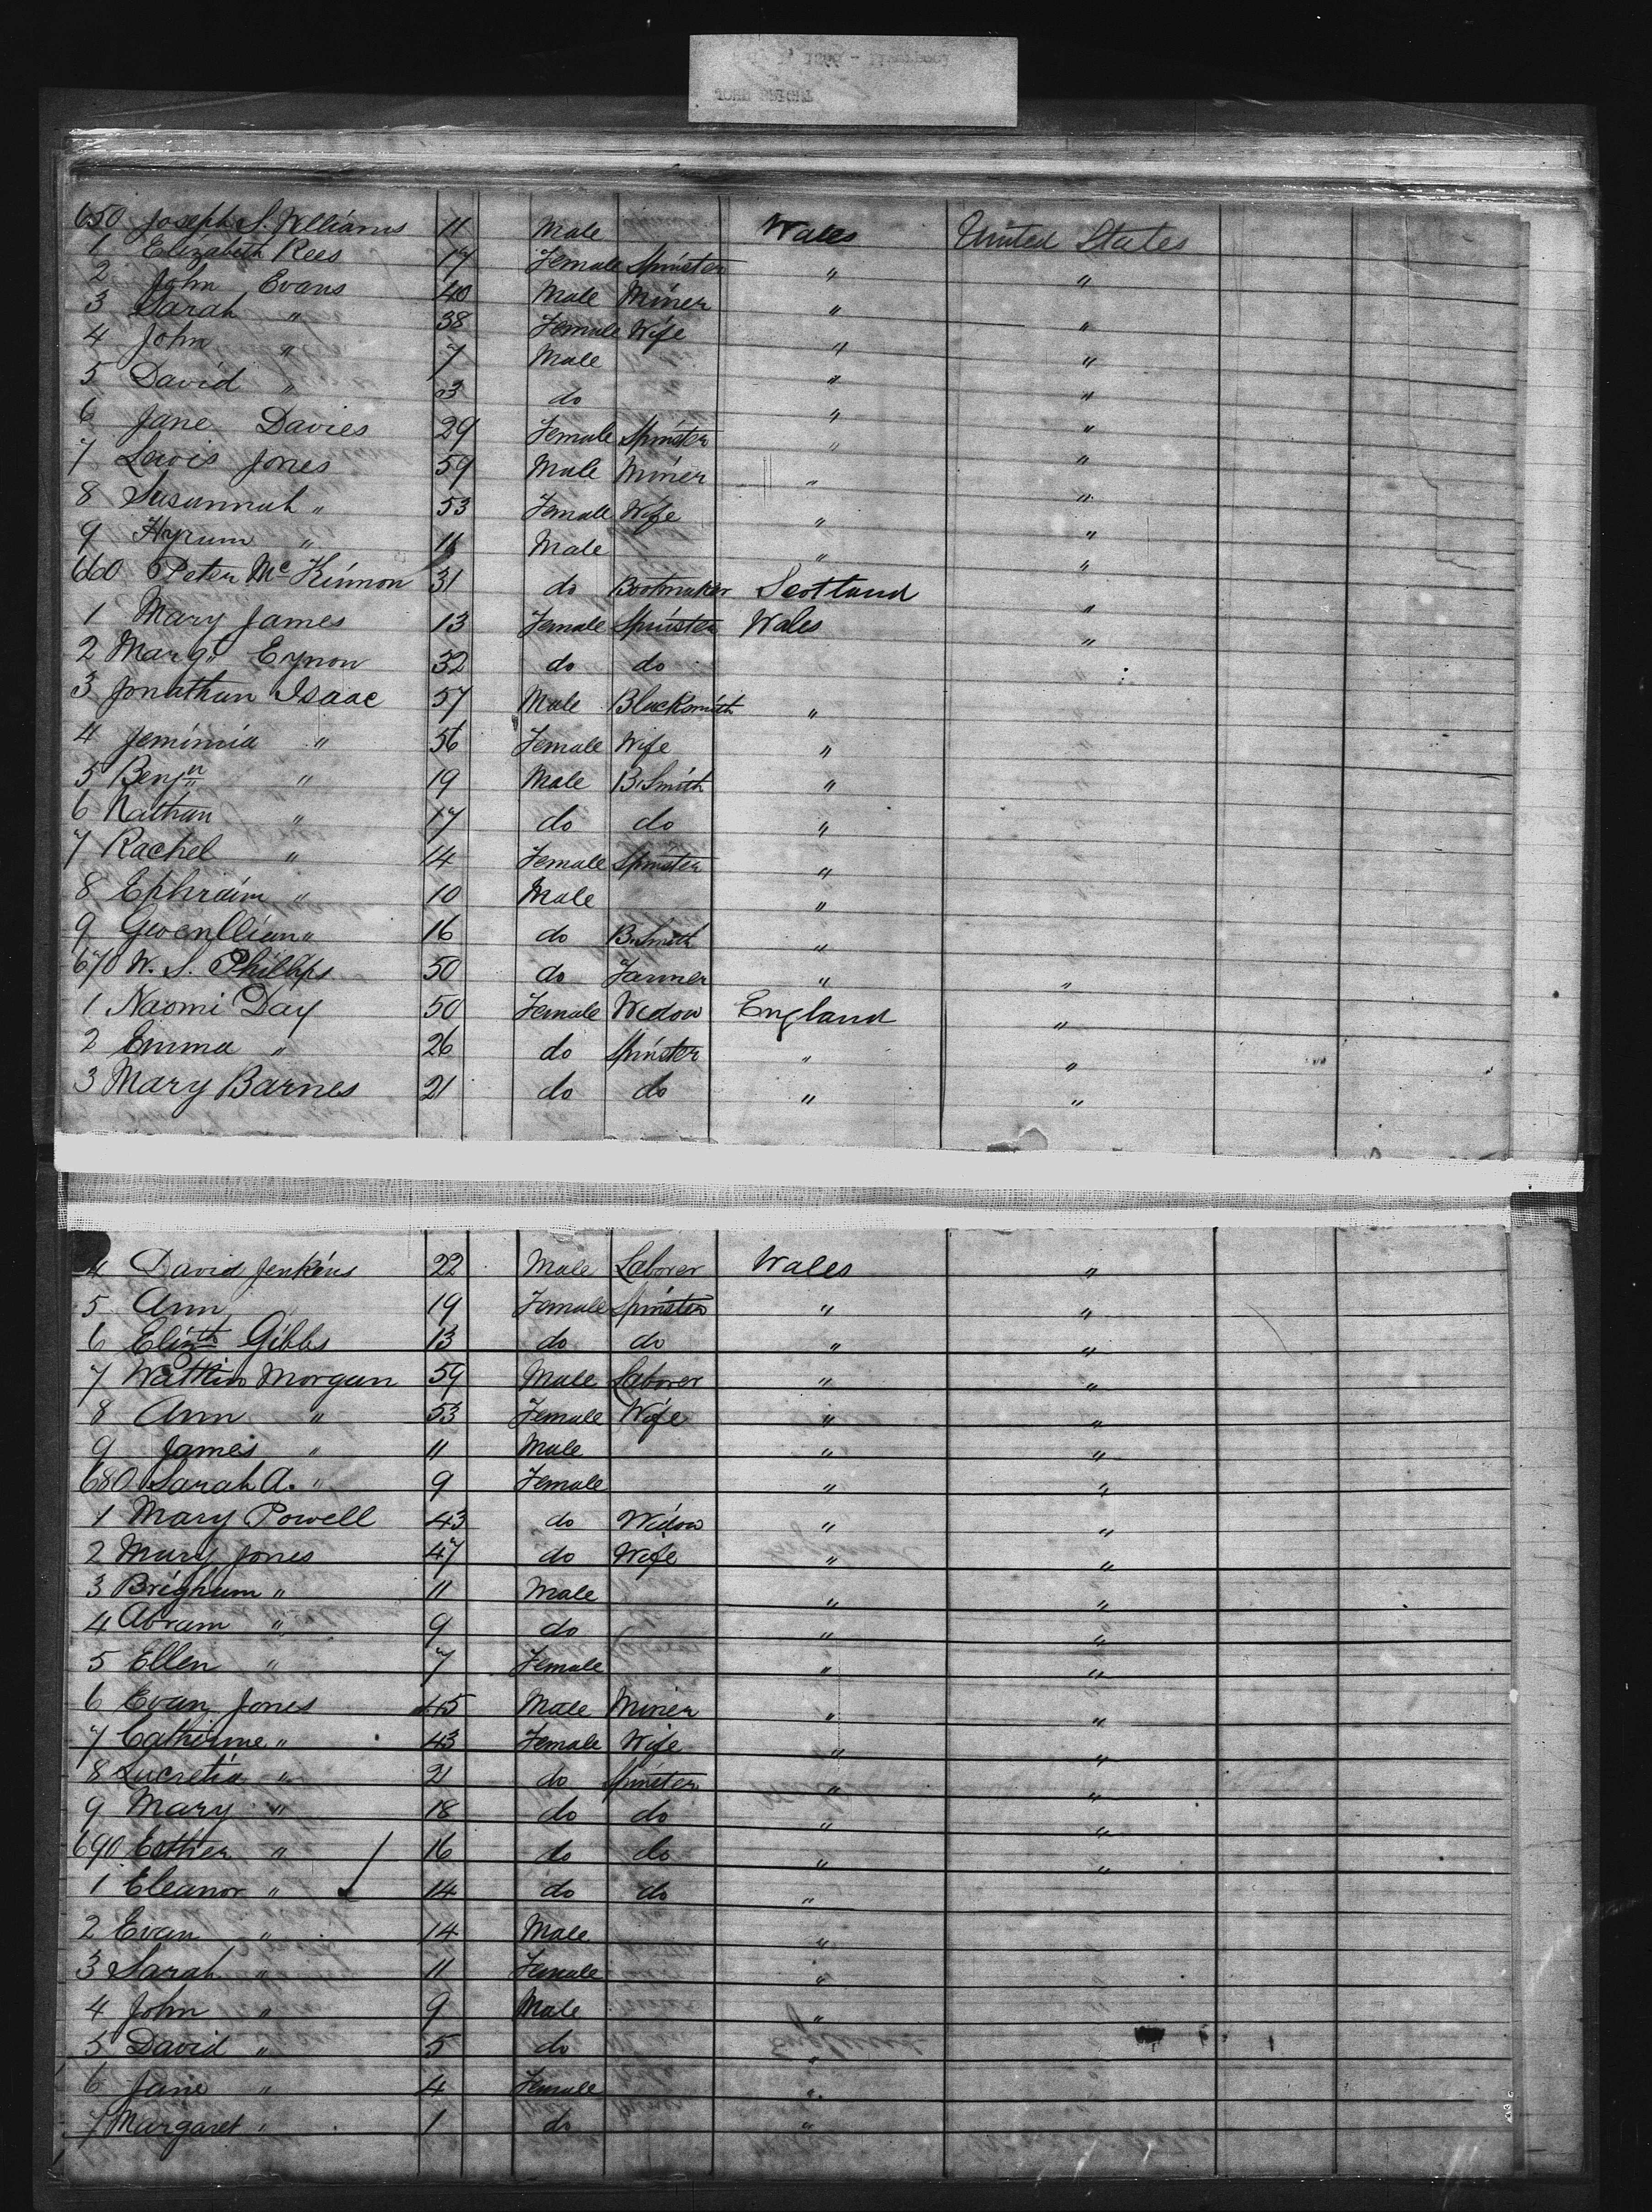 650 Joseph S. Williams 11 Male Wales United States
1 Elizabeth Rees 17 Female Spinster " "
2 John Evans 40 Male Miner " "
3 Sarah " 38 Female Wife " "
4 John " 7 Male " "
5 David " 3 do " "
6 Jane Davies 29 Female Spinster " "
7 Lewis Jones 59 Male Miner " "
8 Susannah " 53 Female Wife " "
9 Hyrum " 16 Male " "
660 Peter McKinnon 31 do Bootmaker Scotland "
1 Mary James 13 Female Spinster Wales "
2 Margt Eynon 32 do do
3 Jonathan Isaac 57 Male Blacksmith "
4 Jemimia " 56 Female Wife "
5 Benjn " 19 Male B.Smith "
6 Nathan " 17 do do "
7 Rachel " 14 Female Spinster "
8 Ephraim " 10 Male "
9 Gwenllian " 16 do B.Smith "
670 W. S. Phillips 50 do Farmer " "
1 Naomi Day 50 Female Widow England "
2 Emma " 26 do Spinster " "
3 Mary Barnes 21 do do " "
4 David Jenkins 22 Male Laborer Wales "
5 Ann " 19 Female Spinster " "
6 Elizth Gibbs 13 do do " "
7 Watkin Morgan 59 Male Laborer " "
8 Ann " 53 Female Wife " "
9 James " 11 Male " "
680 Sarah A. " 9 Female " "
1 Mary Powell 43 do Widow " "
2 Mary Jones 47 do Wife " "
3 Brigham " 11 Male " "
4 Abram " 9 do " "
5 Ellen " 7 Female " "
6 Evan Jones 45 Male Miner " "
7 Catherine " 43 Female Wife " "
8 Lucretia " 21 do Spinster " "
9 Mary " 18 do do " "
690 Esther " 16 do do " "
1 Eleanor " 14 do do "
2 Evan " 14 Male "
3 Sarah " 11 Female "
4 John " 9 Male "
5 David " 5 do "
6 Jane " 4 Female "
7 Margaret " 1 do "